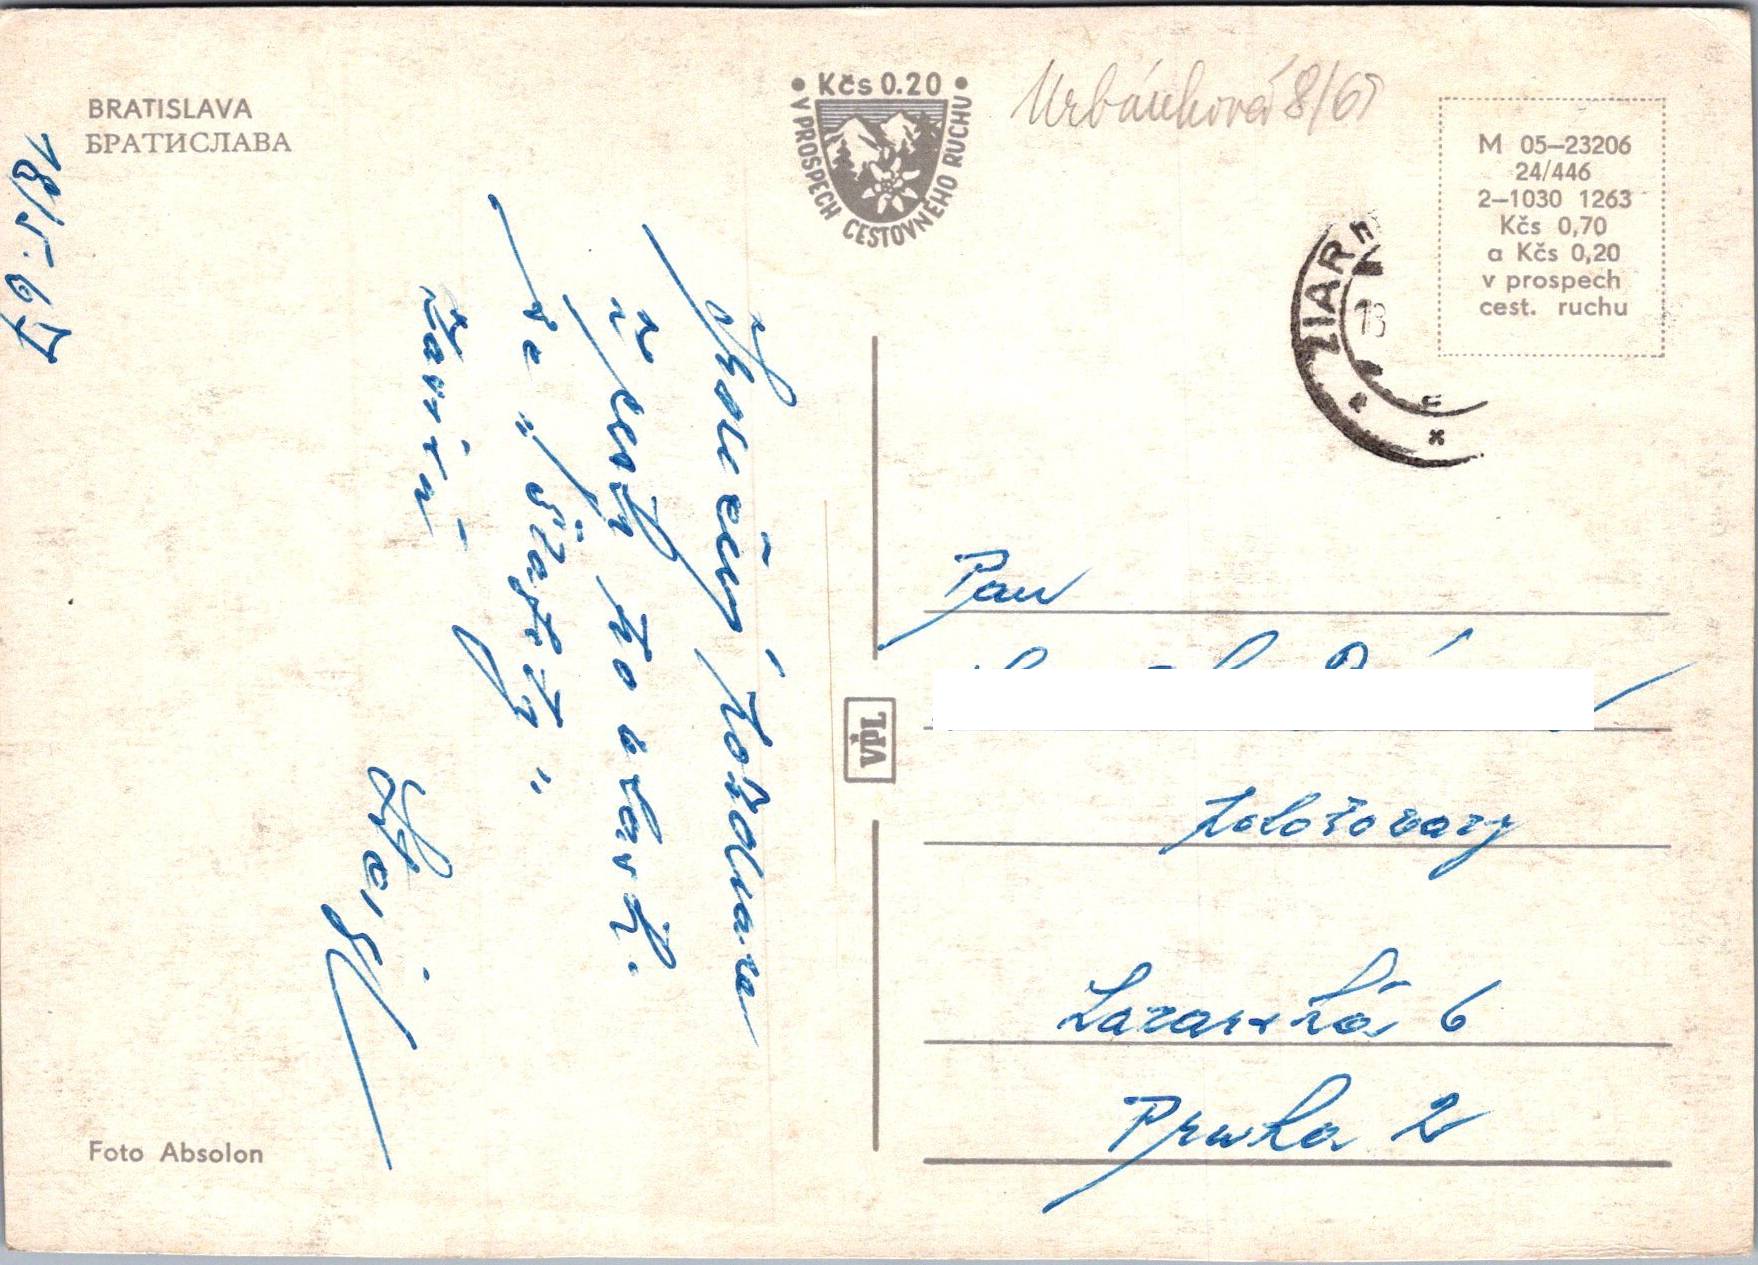 BRATISLAVA
БРАТИСЛАВА
• Kčs 0.20 •
V PROSPECH CESTOVNÉHO RUCHU
Urbánková 8/67
M 05–23206
24/446
2–1030 1263
Kčs 0,70
a Kčs 0,20
v prospech
cest. ruchu
ŽIAR
18
18/5.67
Srdečný pozdrav
z cesty po vlasti.
se „šťastný"
Pan
VČPL
Lazarská 6
Praha 2
Foto Absolon